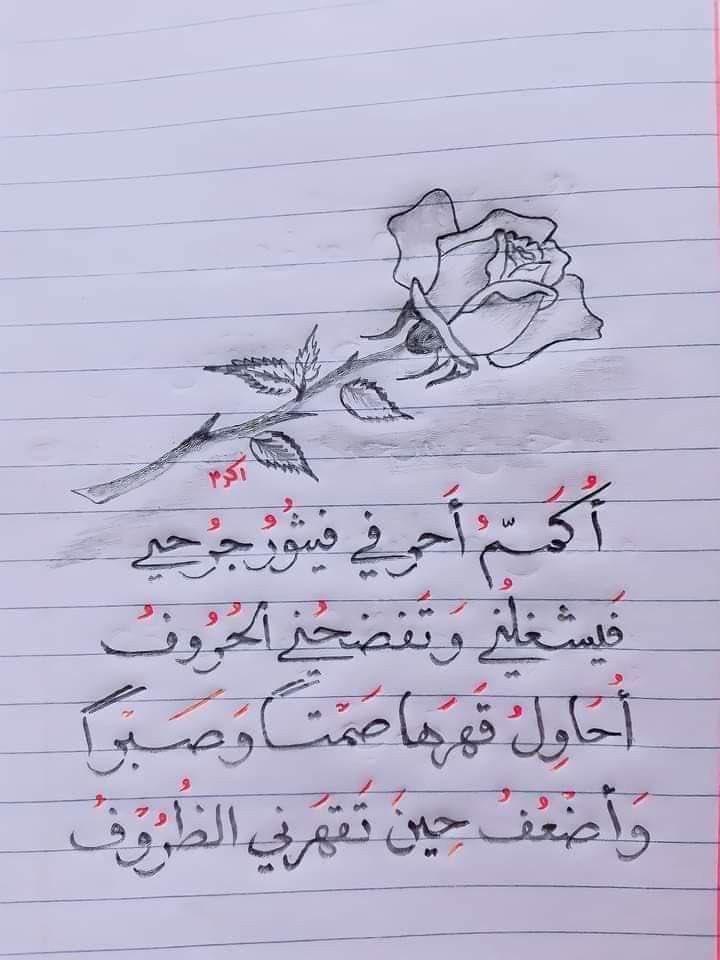 اكرم
أُكَمّمُ أَحرفي فيثُورُ جُرُحيے
فَيشغلُنيے وَتَفضحُنيے الحُرُوفُ
أُحَاوِلُ قَهرَها صَمْتاً وَصَبْراً
وَأضْعُفُ حِينَ تَقهَرَني الظُرُوْفُ